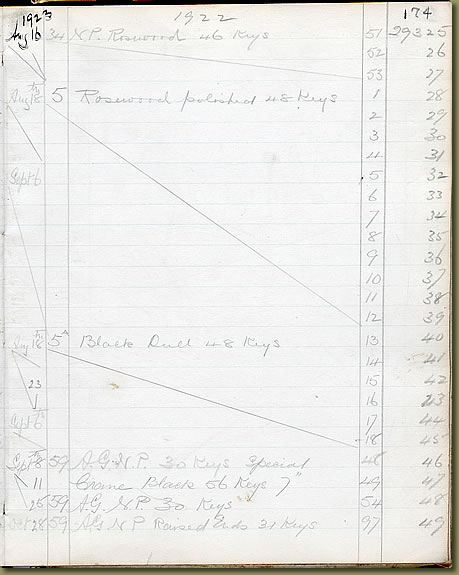 1923 1922 174
Aug 16 34 N.P. Rosewood 46 Keys 51 29325
52 26
53 27
Aug 18th 5 Rosewood polished 48 Keys 1 28
2 29
3 30
4 31
Sept 6 5 32
6 33
7 34
8 35
9 36
10 37
11 38
12 39
Aug 18th 5A Black Dull 48 Keys 13 40
14 41
23 15 42
16 43
Sept 6th 17 44
18 45
Sept 8th 59 A.G.N.P. 30 Keys Special 48 46
11 Crome Black 56 Keys 7" 49 47
26 59 A.G. N.P. 30 Keys 54 48
Oct 28 59 AG NP Raised Ends 31 Keys 97 49